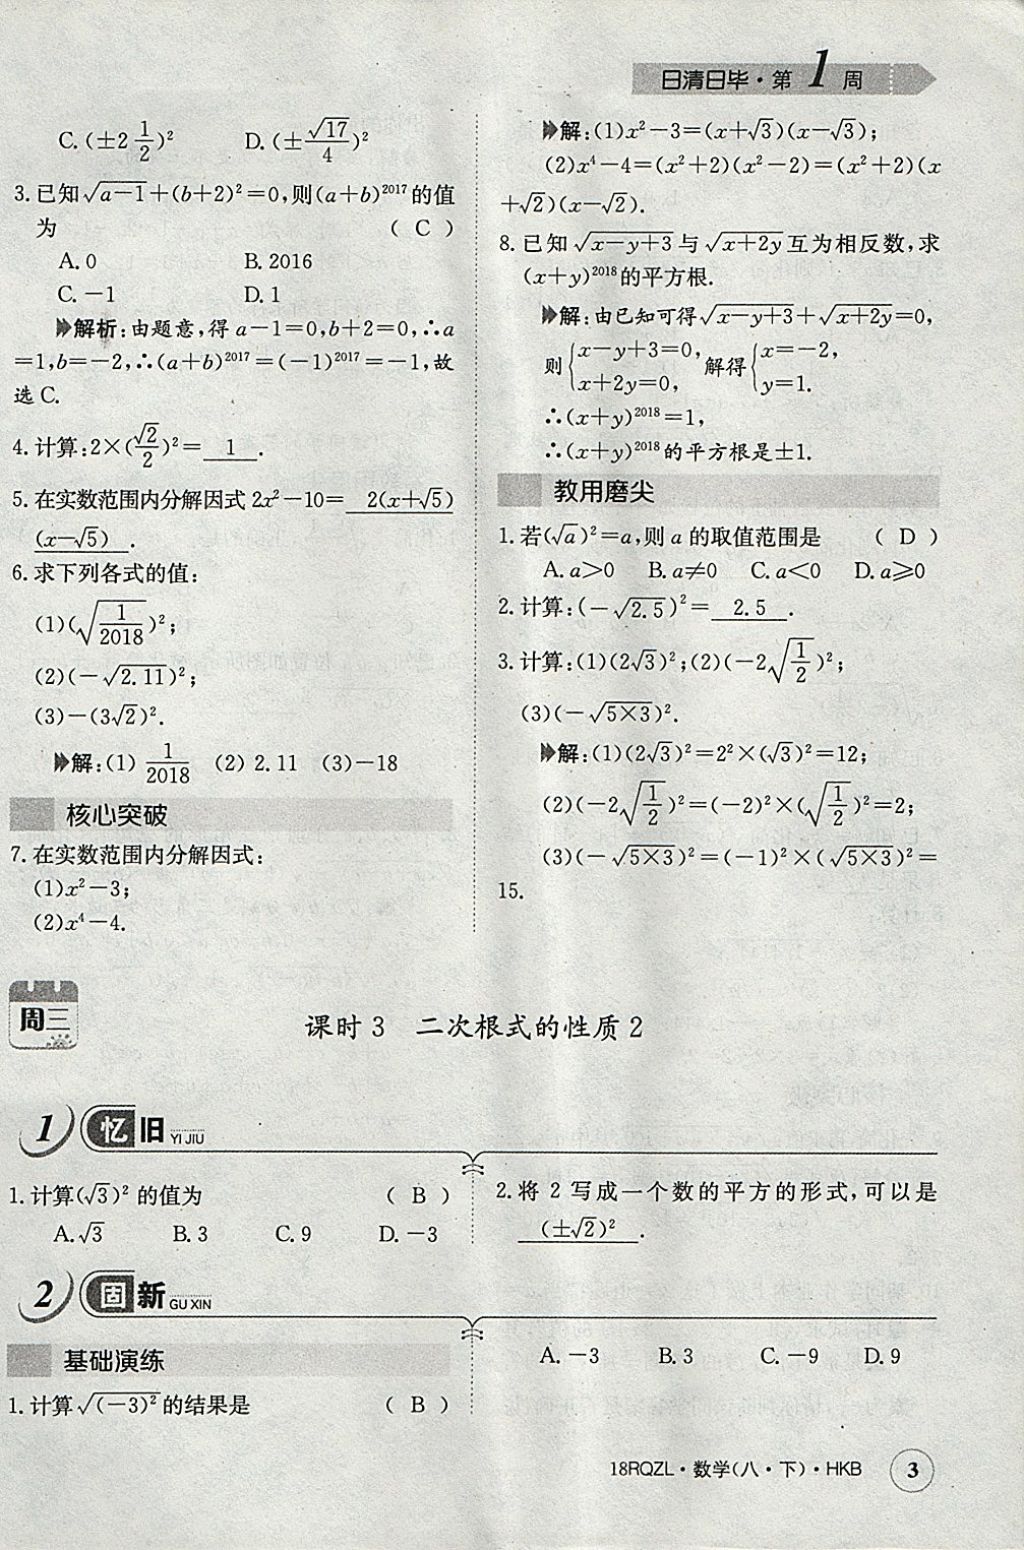 日清日毕·第1周
C.(±2 1/2)² D.(±√17/4)²
3.已知√(a-1)+(b+2)²=0,则(a+b)²⁰¹⁷的值
为 ( C )
A.0 B.2016
C.-1 D.1
解析:由题意,得a-1=0,b+2=0,∴a
=1,b=-2,∴(a+b)²⁰¹⁷=(-1)²⁰¹⁷=-1,故
选C.
4.计算:2×(√2/2)²= 1 .
5.在实数范围内分解因式2x²-10= 2(x+√5)
(x-√5) .
6.求下列各式的值:
(1)(√(1/2018))²;
(2)(-√2.11)²;
(3)-(3√2)².
解:(1) 1/2018 (2) 2.11 (3)-18
核心突破
7.在实数范围内分解因式:
(1)x²-3;
(2)x⁴-4.
解:(1)x²-3=(x+√3)(x-√3);
(2)x⁴-4=(x²+2)(x²-2)=(x²+2)(x
+√2)(x-√2).
8.已知√(x-y+3)与√(x+2y)互为相反数,求
(x+y)²⁰¹⁸的平方根.
解:由已知可得√(x-y+3)+√(x+2y)=0,
则{x-y+3=0, x+2y=0, 解得{x=-2, y=1.
∴(x+y)²⁰¹⁸=1,
∴(x+y)²⁰¹⁸的平方根是±1.
教用磨尖
1.若(√a)²=a,则a的取值范围是 ( D )
A.a>0 B.a≠0 C.a<0 D.a≥0
2.计算:(-√2.5)²= 2.5 .
3.计算:(1)(2√3)²;(2)(-2√(1/2))²;
(3)(-√(5×3))².
解:(1)(2√3)²=2²×(√3)²=12;
(2)(-2√(1/2))²=(-2)²×(√(1/2))²=2;
(3)(-√(5×3))²=(-1)²×(√(5×3))²=
15.
周三
课时3 二次根式的性质2
1 忆旧 YI JIU
1.计算(√3)²的值为 ( B )
A.√3 B.3 C.9 D.-3
2.将2写成一个数的平方的形式,可以是
(±√2)² .
2 固新 GU XIN
基础演练
1.计算√(-3)²的结果是 ( B )
A.-3 B.3 C.-9 D.9
18RQZL·数学(八·下)·HKB 3